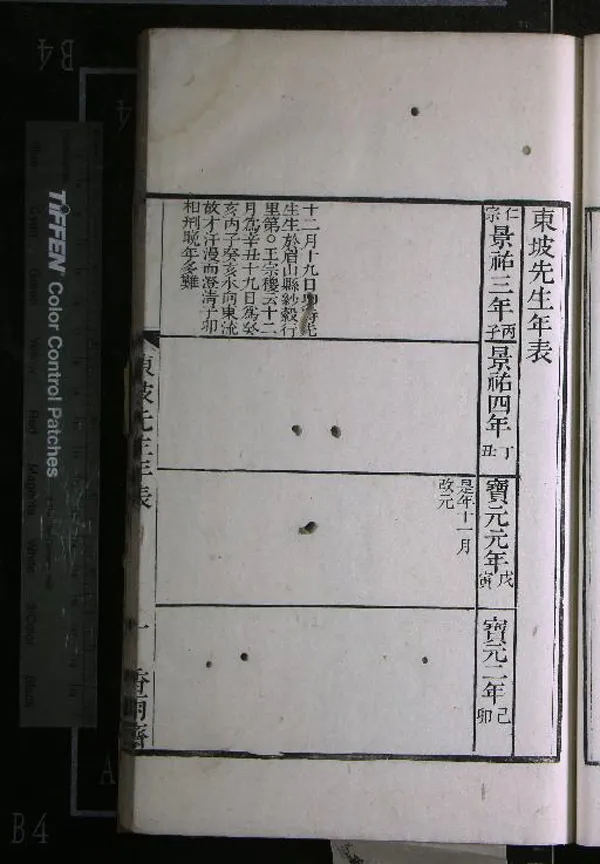 東坡先生年表
仁宗景祐三年丙子
十二月十九日卯時先
生生於眉山縣紗縠行
里第○王宗稷云十二
月爲辛丑十九日爲癸
亥丙子癸亥水向東流
故才汗漫而澄清子卯
相刑晚年多難
景祐四年丁丑
寶元元年戊寅
是年十一月
改元
寶元二年己卯
東坡先生年表
一
香雨齋
TIFFEN Color Control Patches
B4
B4